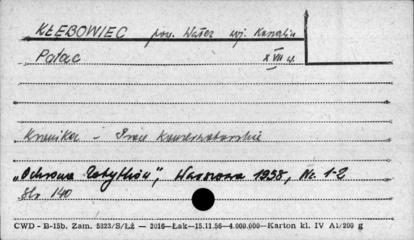 KŁĘBOWIEC pow. Wałcz woj. Koszalin
Pałac XVII w.
Kronika – Prace Konserwatorskie
„Ochrona Zabytków", Warszawa 1958, Nr. 1-2
Str. 140
CWD - B-15b. Zam. 5323/S/Łż — 2016—Łak—15.11.56—4.000.000—Karton kl. IV A1/200 g